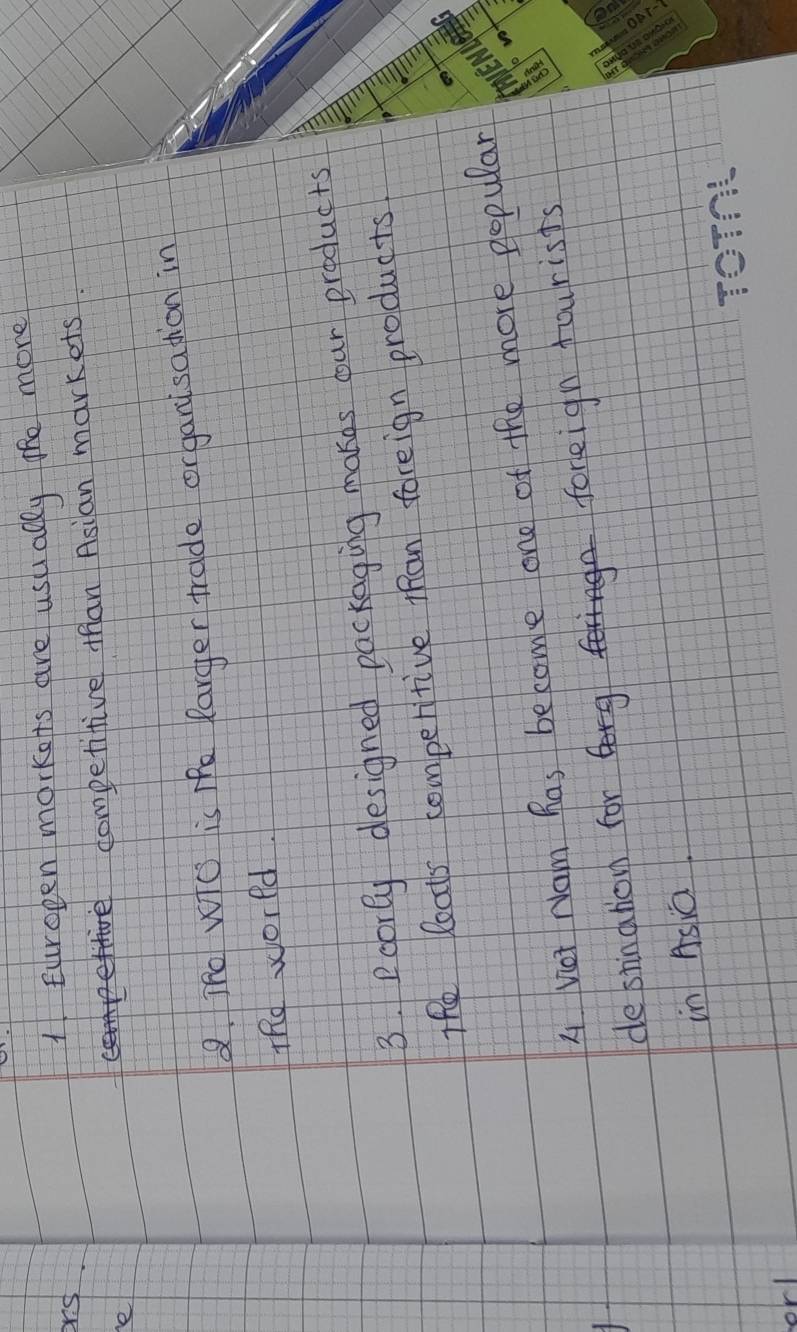 1. Europen markets are usually the more
competitive competitive than Asian markets.
2. The WTO is the larger trade organisation in
the world.
3. Poorly designed packaging makes our products
the leats competitive than foreign products.
4. Viet Nam has become one of the more popular
destination for forg foringn foreign tourists
in Asia.
TOTAL
ors.
e
y.
er!